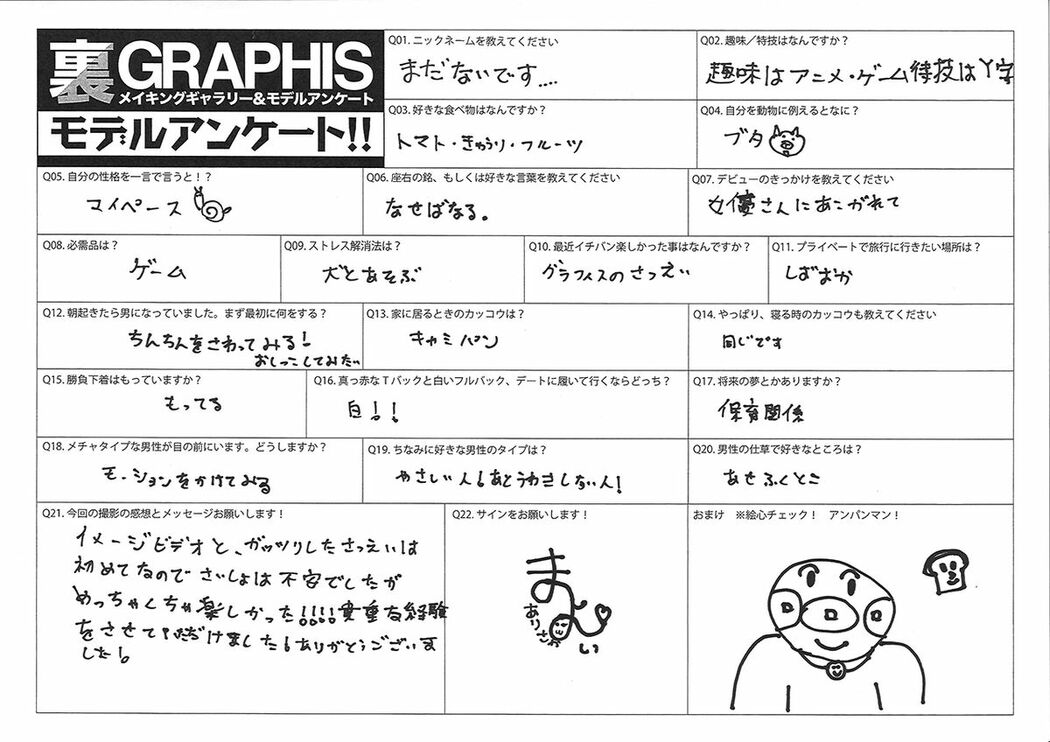 裏GRAPHIS
メイキングギャラリー&モデルアンケート
モデルアンケート!!
Q01. ニックネームを教えてください
まだないです....
Q02. 趣味／特技はなんですか？
趣味はアニメ・ゲーム特技はY字
Q03. 好きな食べ物はなんですか？
トマト・きゅうり・フルーツ
Q04. 自分を動物に例えるとなに？
ブタ
Q05. 自分の性格を一言で言うと！？
マイペース
Q06. 座右の銘、もしくは好きな言葉を教えてください
なせばなる。
Q07. デビューのきっかけを教えてください
女優さんにあこがれて
Q08. 必需品は？
ゲーム
Q09. ストレス解消法は？
犬とあそぶ
Q10. 最近イチバン楽しかった事はなんですか？
グラフィスのさつえい
Q11. プライベートで旅行に行きたい場所は？
しずおか
Q12. 朝起きたら男になっていました。まず最初に何をする？
ちんちんをさわってみる！
おしっこしてみたい
Q13. 家に居るときのカッコウは？
キャミパン
Q14. やっぱり、寝る時のカッコウも教えてください
同じです
Q15. 勝負下着はもっていますか？
もってる
Q16. 真っ赤なTバックと白いフルバック、デートに履いて行くならどっち？
白！！
Q17. 将来の夢とかありますか？
保育関係
Q18. メチャタイプな男性が目の前にいます。どうしますか？
モーションをかけてみる
Q19. ちなみに好きな男性のタイプは？
やさしい人！あとうわきしない人！
Q20. 男性の仕草で好きなところは？
あせふくとこ
Q21. 今回の撮影の感想とメッセージお願いします！
イメージビデオと、ガッツリしたさつえいは
初めてなのでさいしょは不安でしたが
めっちゃくちゃ楽しかった！！！！貴重な経験
をさせていただけました！ありがとうございま
した！
Q22. サインをお願いします！
おまけ　※絵心チェック！　アンパンマン！